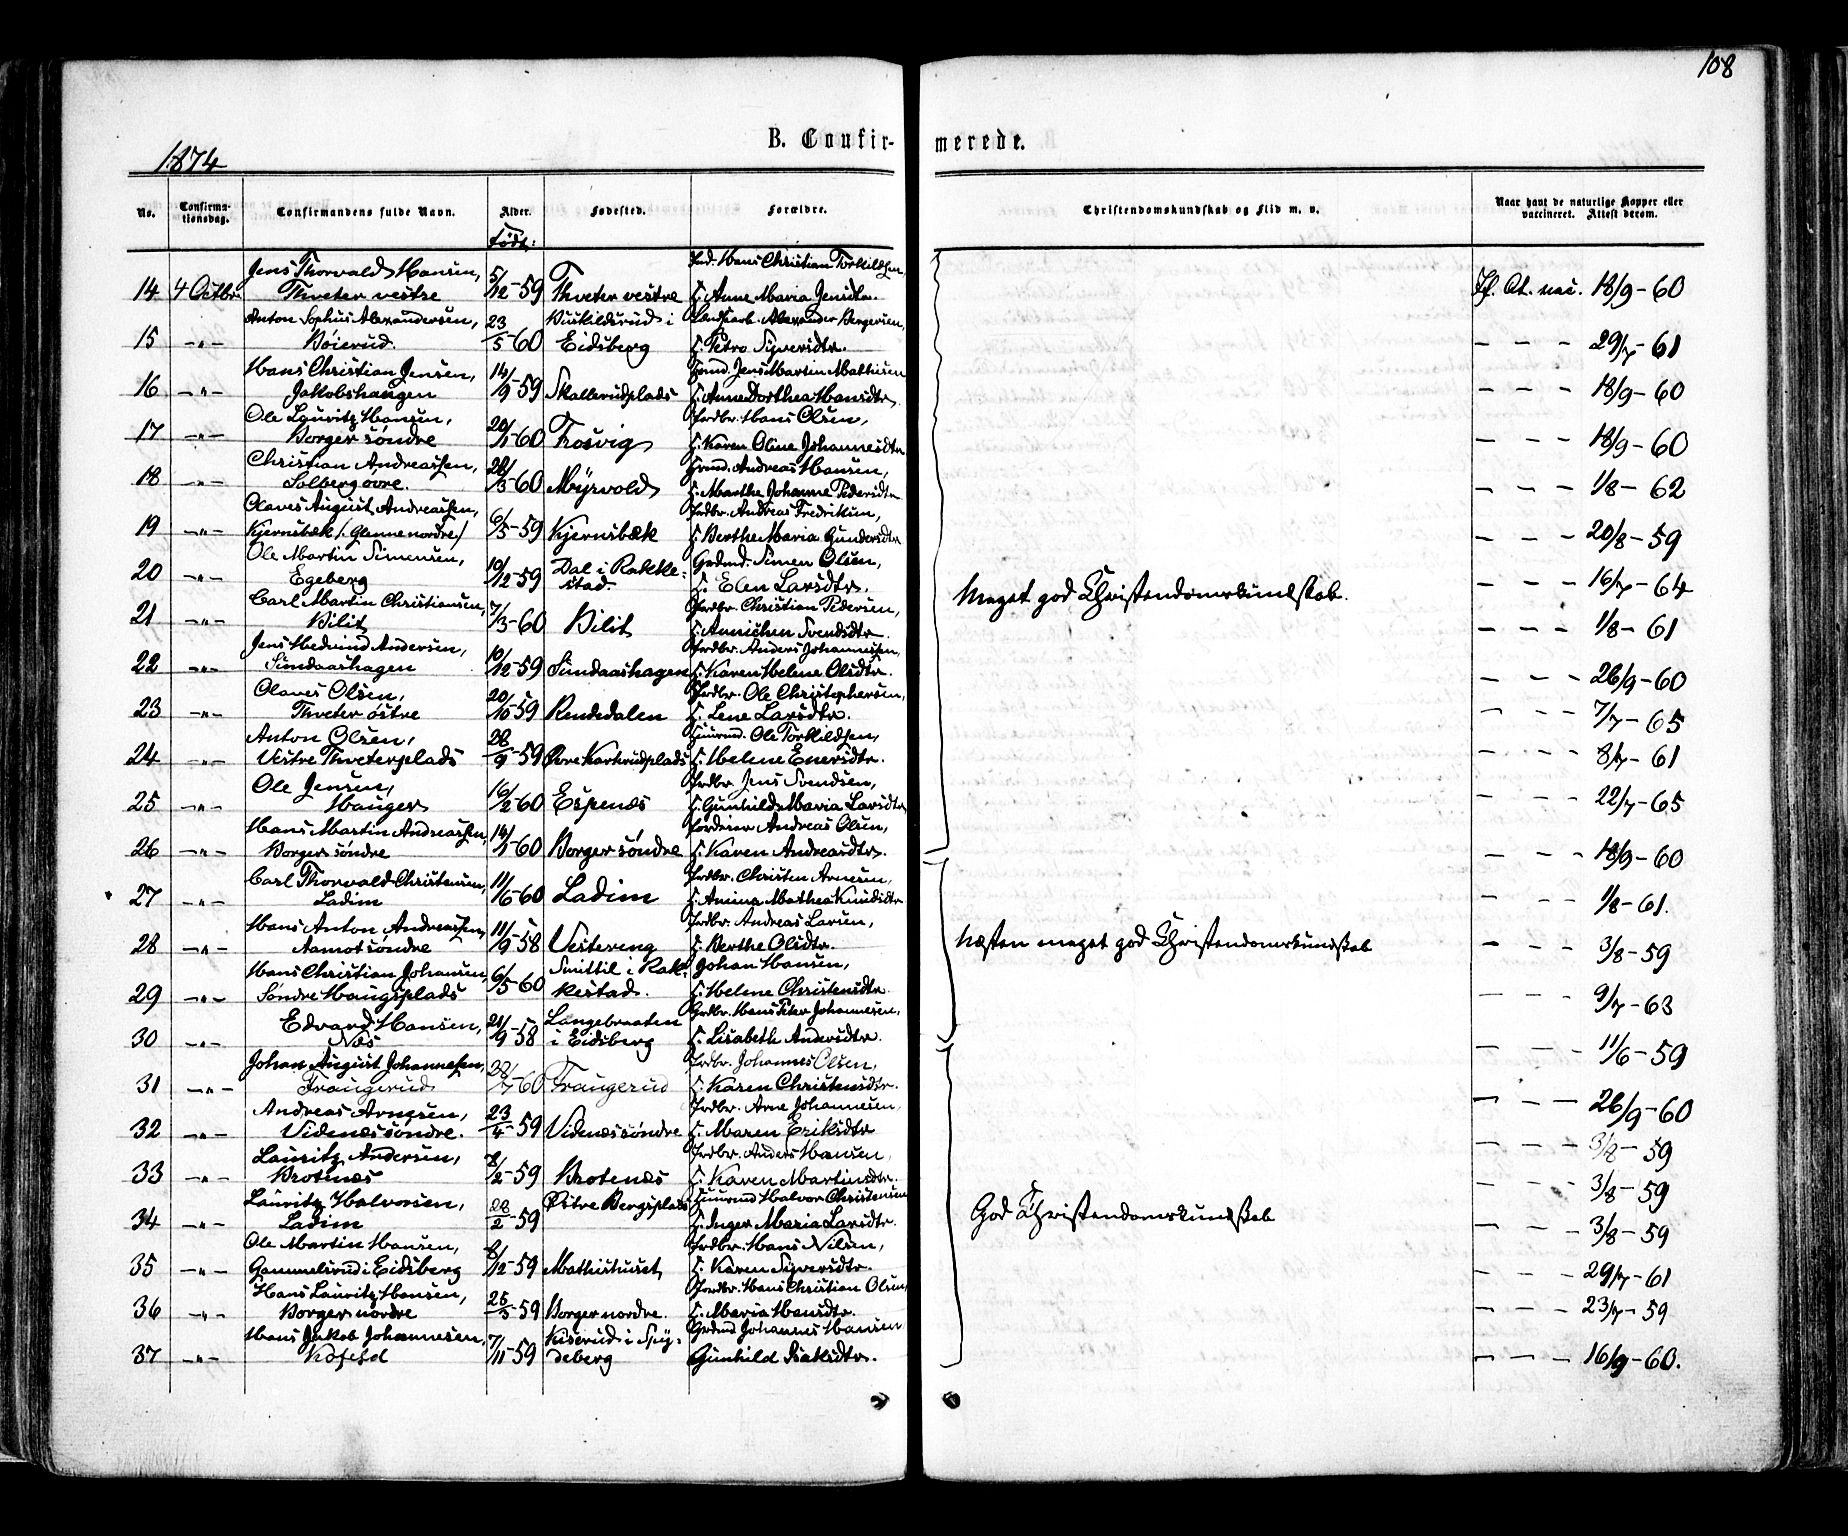 108
B. Confirmerede.
1874
No. Confirmationsdag. Confirmandens fulde Navn. Alder. Fødested. Forældre. Christendomskundskab og Flid m. v. Naar havt de naturlige Kopper eller vaccineret. Attest derom.
Født:
Jens Thorvald Hansen, Hans Christian Torkildsen,
14 4 Octbr. Thveter vestre 5/12-59 Thveter vestre Anne Maria Jensdtr. 18/9-60
Anton Sophus Alexandersen, Buskildsrud i Alexander Bergersen,
15 -"- Bøierud. 23/5-60 Eidsberg Petra Syversdtr. - - - 29/7-61
Hans Christian Jensen, Jens Martin Mathisen
16 -"- Jakobshaugen 14/9-59 Skallerudplads Anne Dorthea Hansdtr. - - - 18/9-60
Ole Lauritz Hansen, Grdbr. Hans Olsen,
17 -"- Borger søndre 20/1-60 Trosvig Karen Oline Johannesdtr - - - 18/9-60
Christian Andreassen, Andreas Hansen,
18 -"- Solberg øvre. 28/3-60 Myrvold Marthe Johanne Pedersdtr - - - 1/8-62
Olaves August Andreassen, Grdbr. Andreas Fredriksen,
19 -"- Kjernsbæk /: Glenne nordre/ 6/5-59 Kjernsbæk Berthe Maria Gundersdtr - - - 20/8-59
Ole Martin Simensen, Dal i Rakke- Grdmd. Simen Olsen,
20 -"- Egeberg 10/12-59 stad. Elen Larsdtr. - - - 16/7-64
Meget god Christendomskundskab.
Carl Martin Christiansen, Grdbr. Christian Pedersen,
21 -"- Bilit 7/3-60 Bilit Annichen Svendsdtr. - - - 1/8-61
Jens Hedvind Andersen, Grdbr. Anders Johannessen,
22 -"- Sundaashagen 10/12-59 Sundaashagen Karen Helene Olsdtr. - - - 26/9-60
Olaves Olsen, Grdbr. Ole Christophersen,
23 -"- Thveter østre 20/10-59 Rendedalen Lene Larsdtr. - - - 7/7-65
Anton Olsen, Ole Torkildsen,
24 -"- Vestre Thveterplads 28/9-59 Øvre Karterudplads Helene Enersdtr. - - - 8/7-61
Ole Jensen, Grdbr. Jens Svendsen,
25 -"- Hauger 16/2-60 Espenæs Gunhild Maria Larsdtr - - - 22/7-65
Hans Martin Andreassen, Andreas Olsen,
26 -"- Borger søndre 14/1-60 Borger søndre Karen Andreasdtr. - - - 18/9-60
Carl Thorvald Christensen, Grdbr. Christen Arnesen,
27 -"- Ladim 11/6-60 Ladim Amina Mathea Knudsdtr - - - 1/8-61.
Hans Anton Andreassen, Grdbr. Andreas Larsen,
28 -"- Aamot søndre 11/9-58 Vestereng Berthe Olsdtr. - - - 3/8-59
Næsten meget god Christendomskundskab
Hans Christian Johansen, Smittil i Rak- Johan Hansen,
29 -"- Søndre Haugsplads 6/5-60 kestad. Helene Christensdtr. - - - 9/7-63
Edvard Hansen, Langebraaten Grdbr. Hans Peter Johannesen,
30 -"- Næs 21/9-58 i Eidsberg Lisabeth Andersdtr. - - - 11/6-59
Johan August Johannessen, Grdbr. Johannes Olsen,
31 -"- Traugerud 60 Traugerud Karen Christensdtr. - - - 26/9-60
Andreas Arnesen, Grdbr. Arne Johannesen,
32 -"- Videnæs søndre. 23/4-59 Videnæs søndre Maren Eriksdtr - - - 3/8-59
Lauritz Andersen, Grdbr. Anders Hansen,
33 -"- Brotnæs 8/2-59 Brotenæs Karen Martinsdtr. - - - 3/8-59
Lauritz Halvorsen, Østre Bergsplads Halvor Christensen
34 -"- Ladim 28/2-59 Inger Maria Larsdtr. - - - 3/8-59
God Christendomskundskab
Ole Martin Hansen, Grdbr. Hans Nilsen,
35 -"- Gammelsrud i Eidsberg 8/12-59 Mathishuset Karen Syversdtr. - - - 29/7-61
Hans Lauritz Hansen, Grdbr. Hans Christian Olsen
36 -"- Borger nordre 25/3-59 Borger nordre. Maria Hansdtr. - - - 23/7-59
Hans Jakob Johannesen, Kiserud i Spy- Grdmd Johannes Hansen
37 -"- 7/11-59 deberg Gunhild - - - 16/9-60.